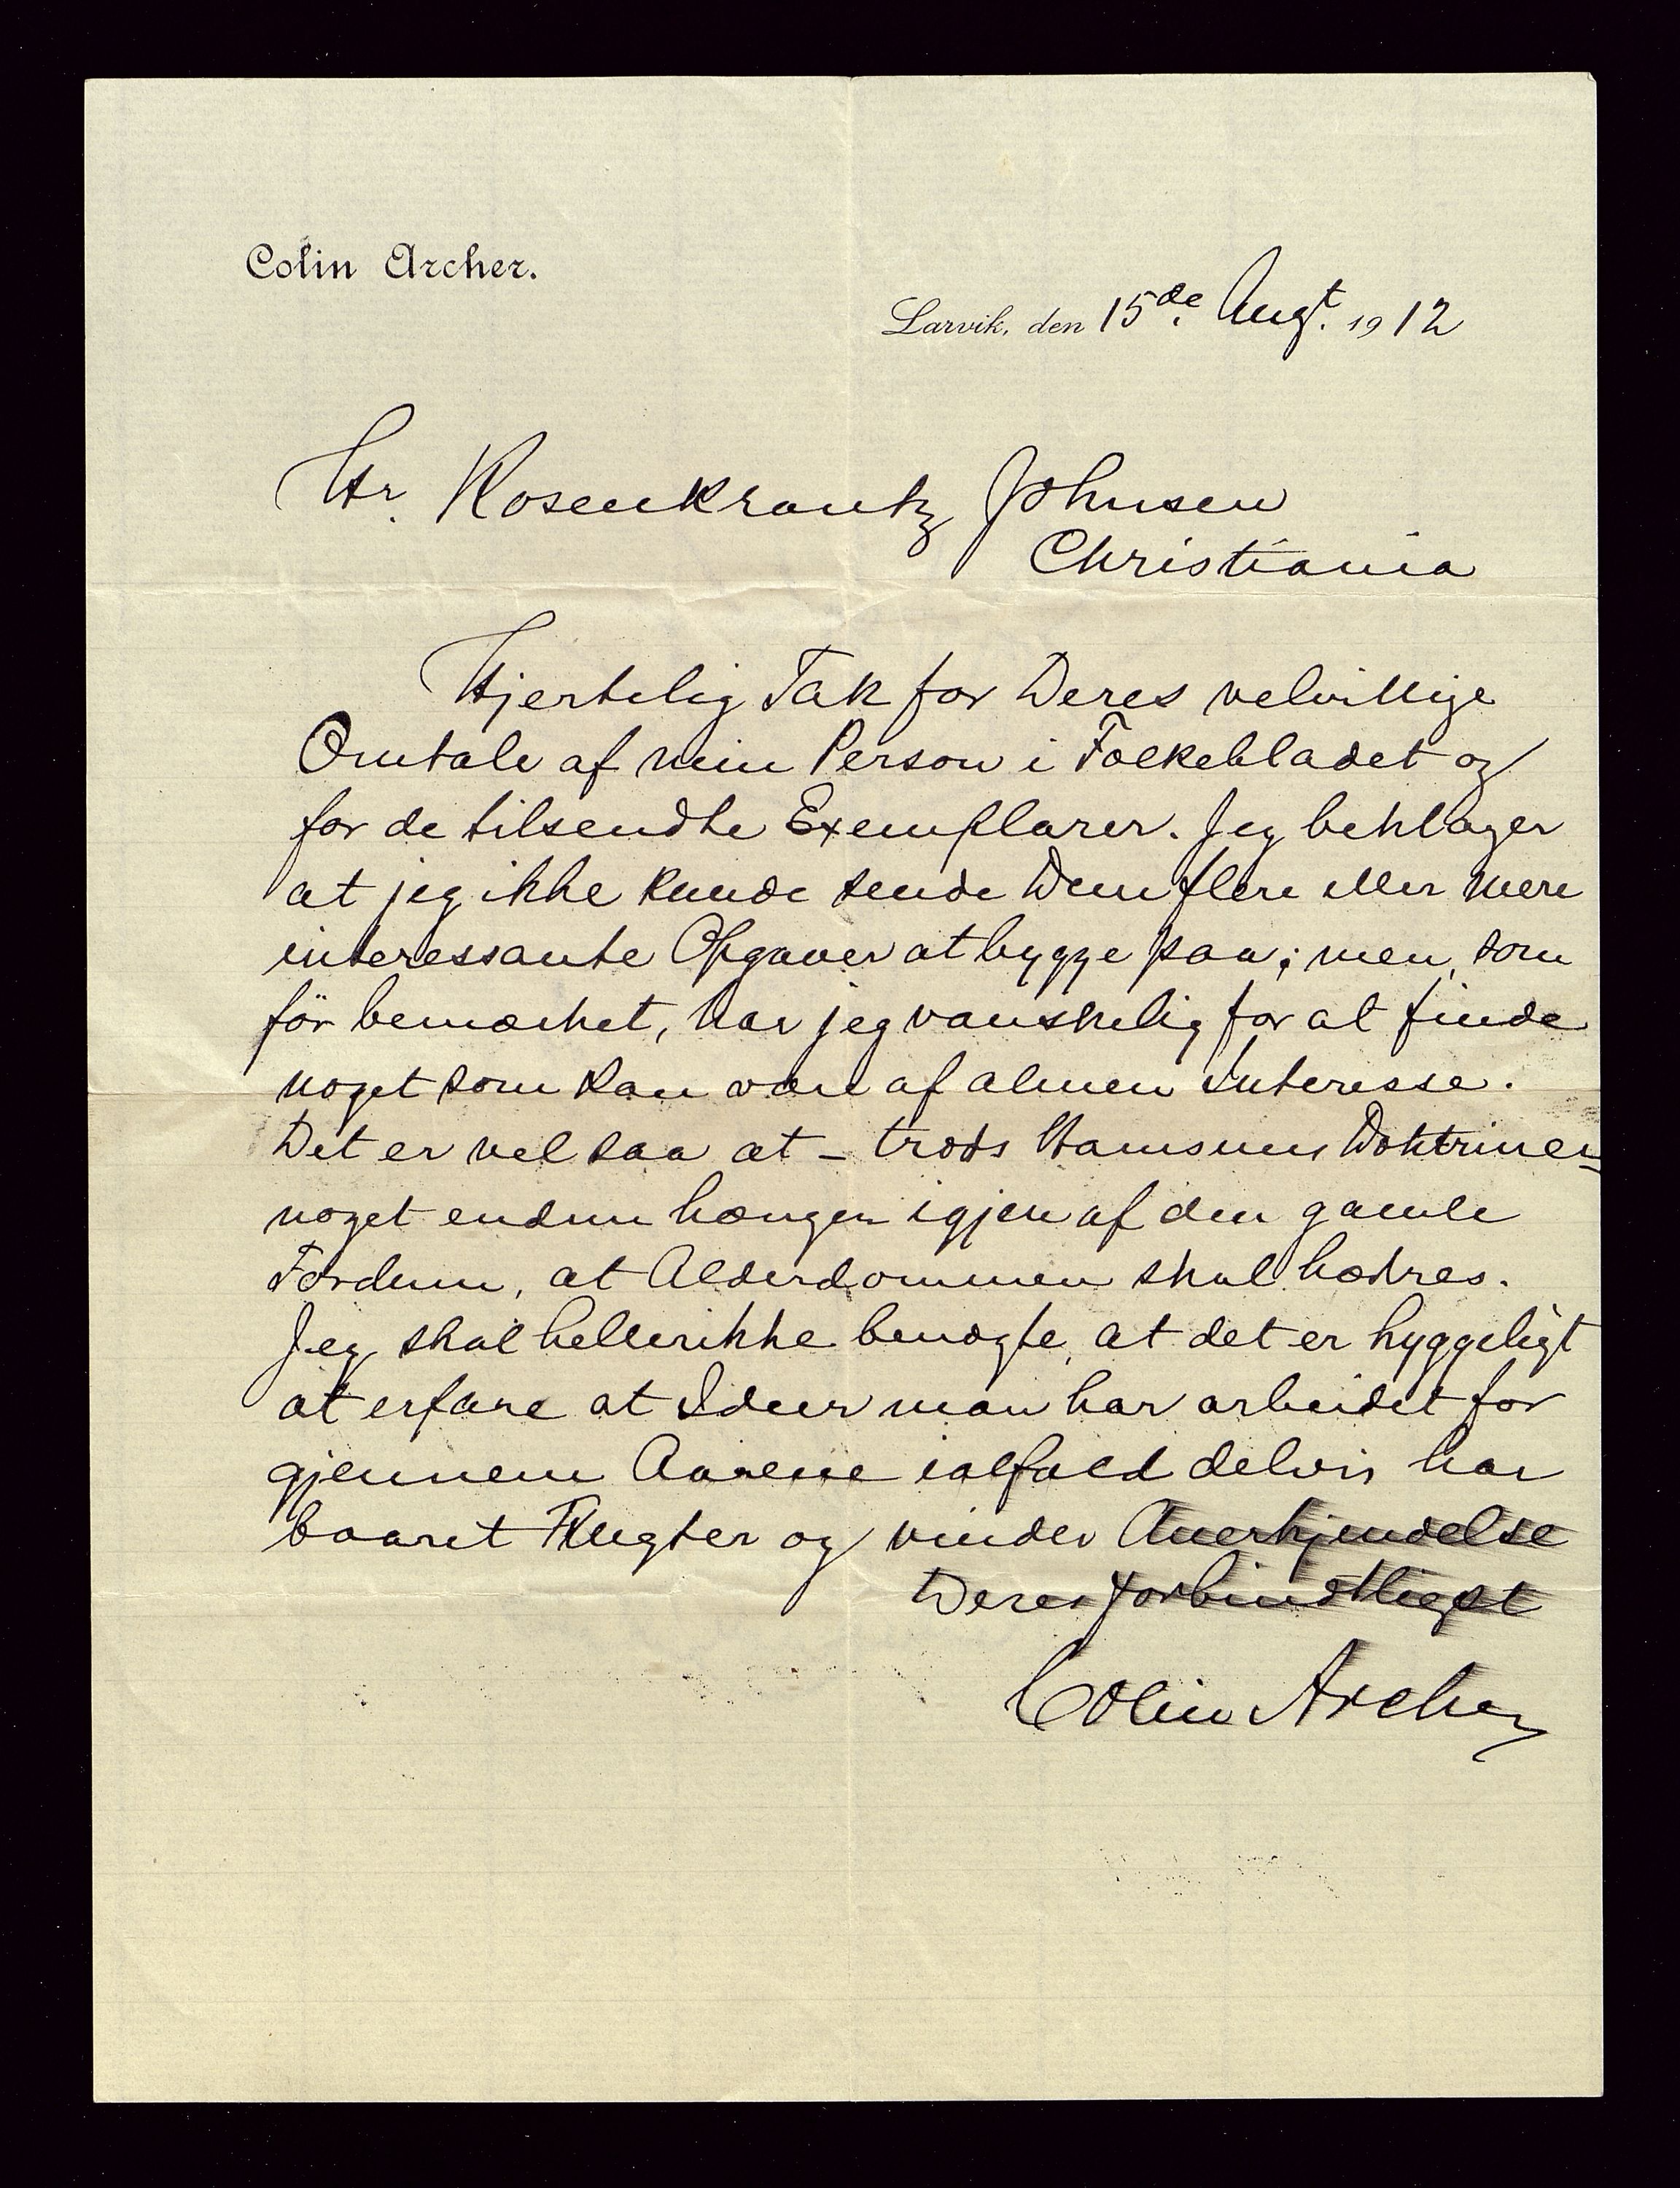 Colin Archer.
Larvik, den 15de Augt. 1912
Hr. Rosenkrantz Johnsen
Christiania
Hjertelig Tak for Deres velvillige
Omtale af min Person i Folkebladet og
for de tilsendte Exemplarer. Jeg beklager
at jeg ikke kunde sende Dem flere eller mere
interessante Opgaver at bygge paa; men, som
för bemærket, har jeg vanskelig for at finde
noget som kan være af almen Interesse.
Det er vel saa at – trods Hamsuns Doktriner –
noget endnu hænger igjen af den gamle
Fordum, at Alderdommen skal hædres.
Jeg skal hellerikke benægte, at det er hyggeligt
at erfare at Ideer man har arbeidet for
gjennem Aarene ialfald delvis har
baaret Frugter og vinder Anerkjendelse
Deres forbindtligst
Colin Archer